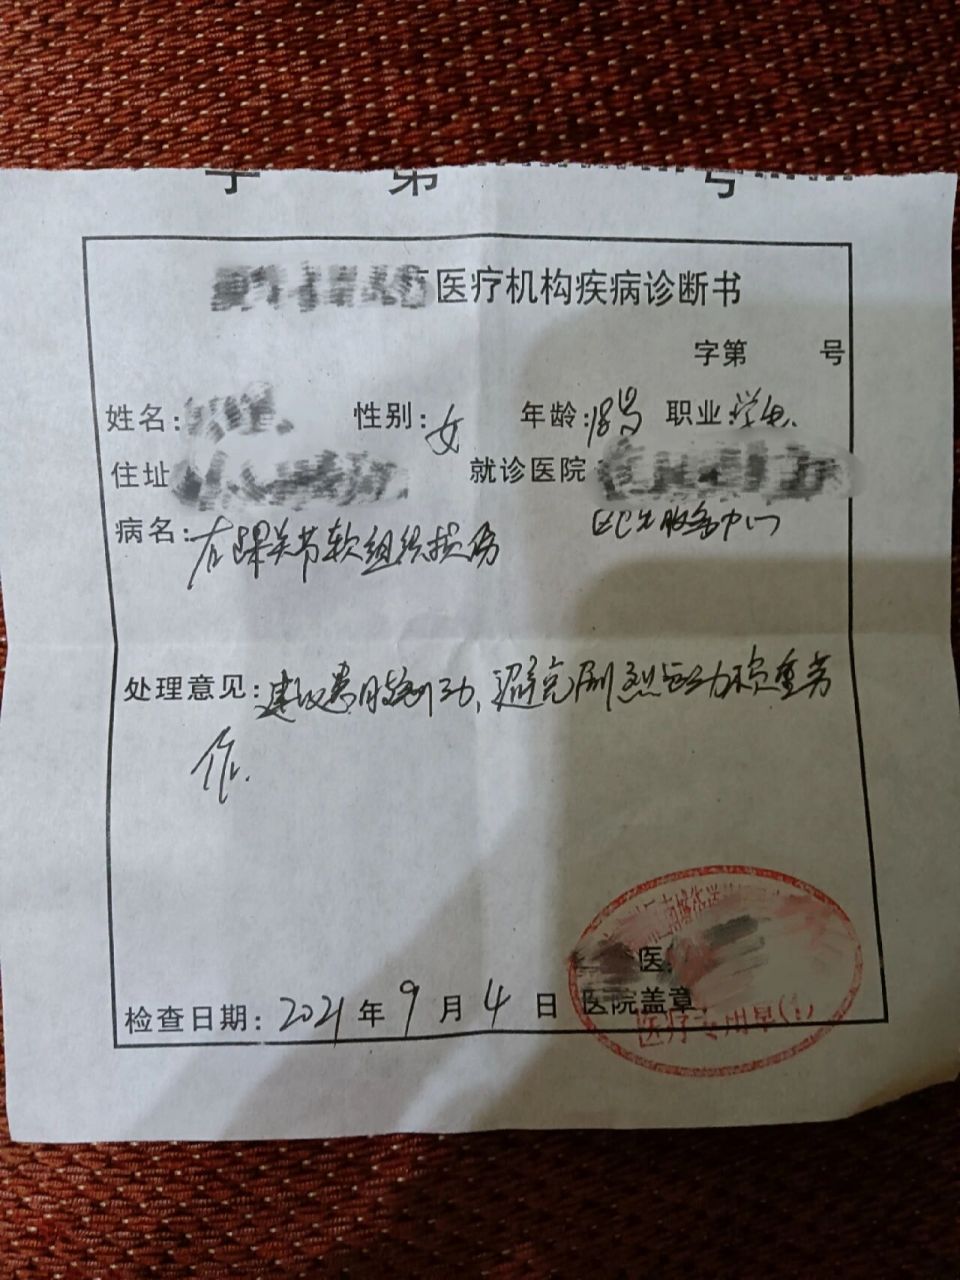 字 第 号
医疗机构疾病诊断书
字第 号
姓名: 性别:女 年龄:18岁 职业:学生.
住址 就诊医院
服务中心
病名:右踝关节软组织损伤
处理意见:建议患肢制动、避免剧烈运动和负重劳
作.
医
检查日期:2021年9月4日 医院盖章
医疗专用章(1)